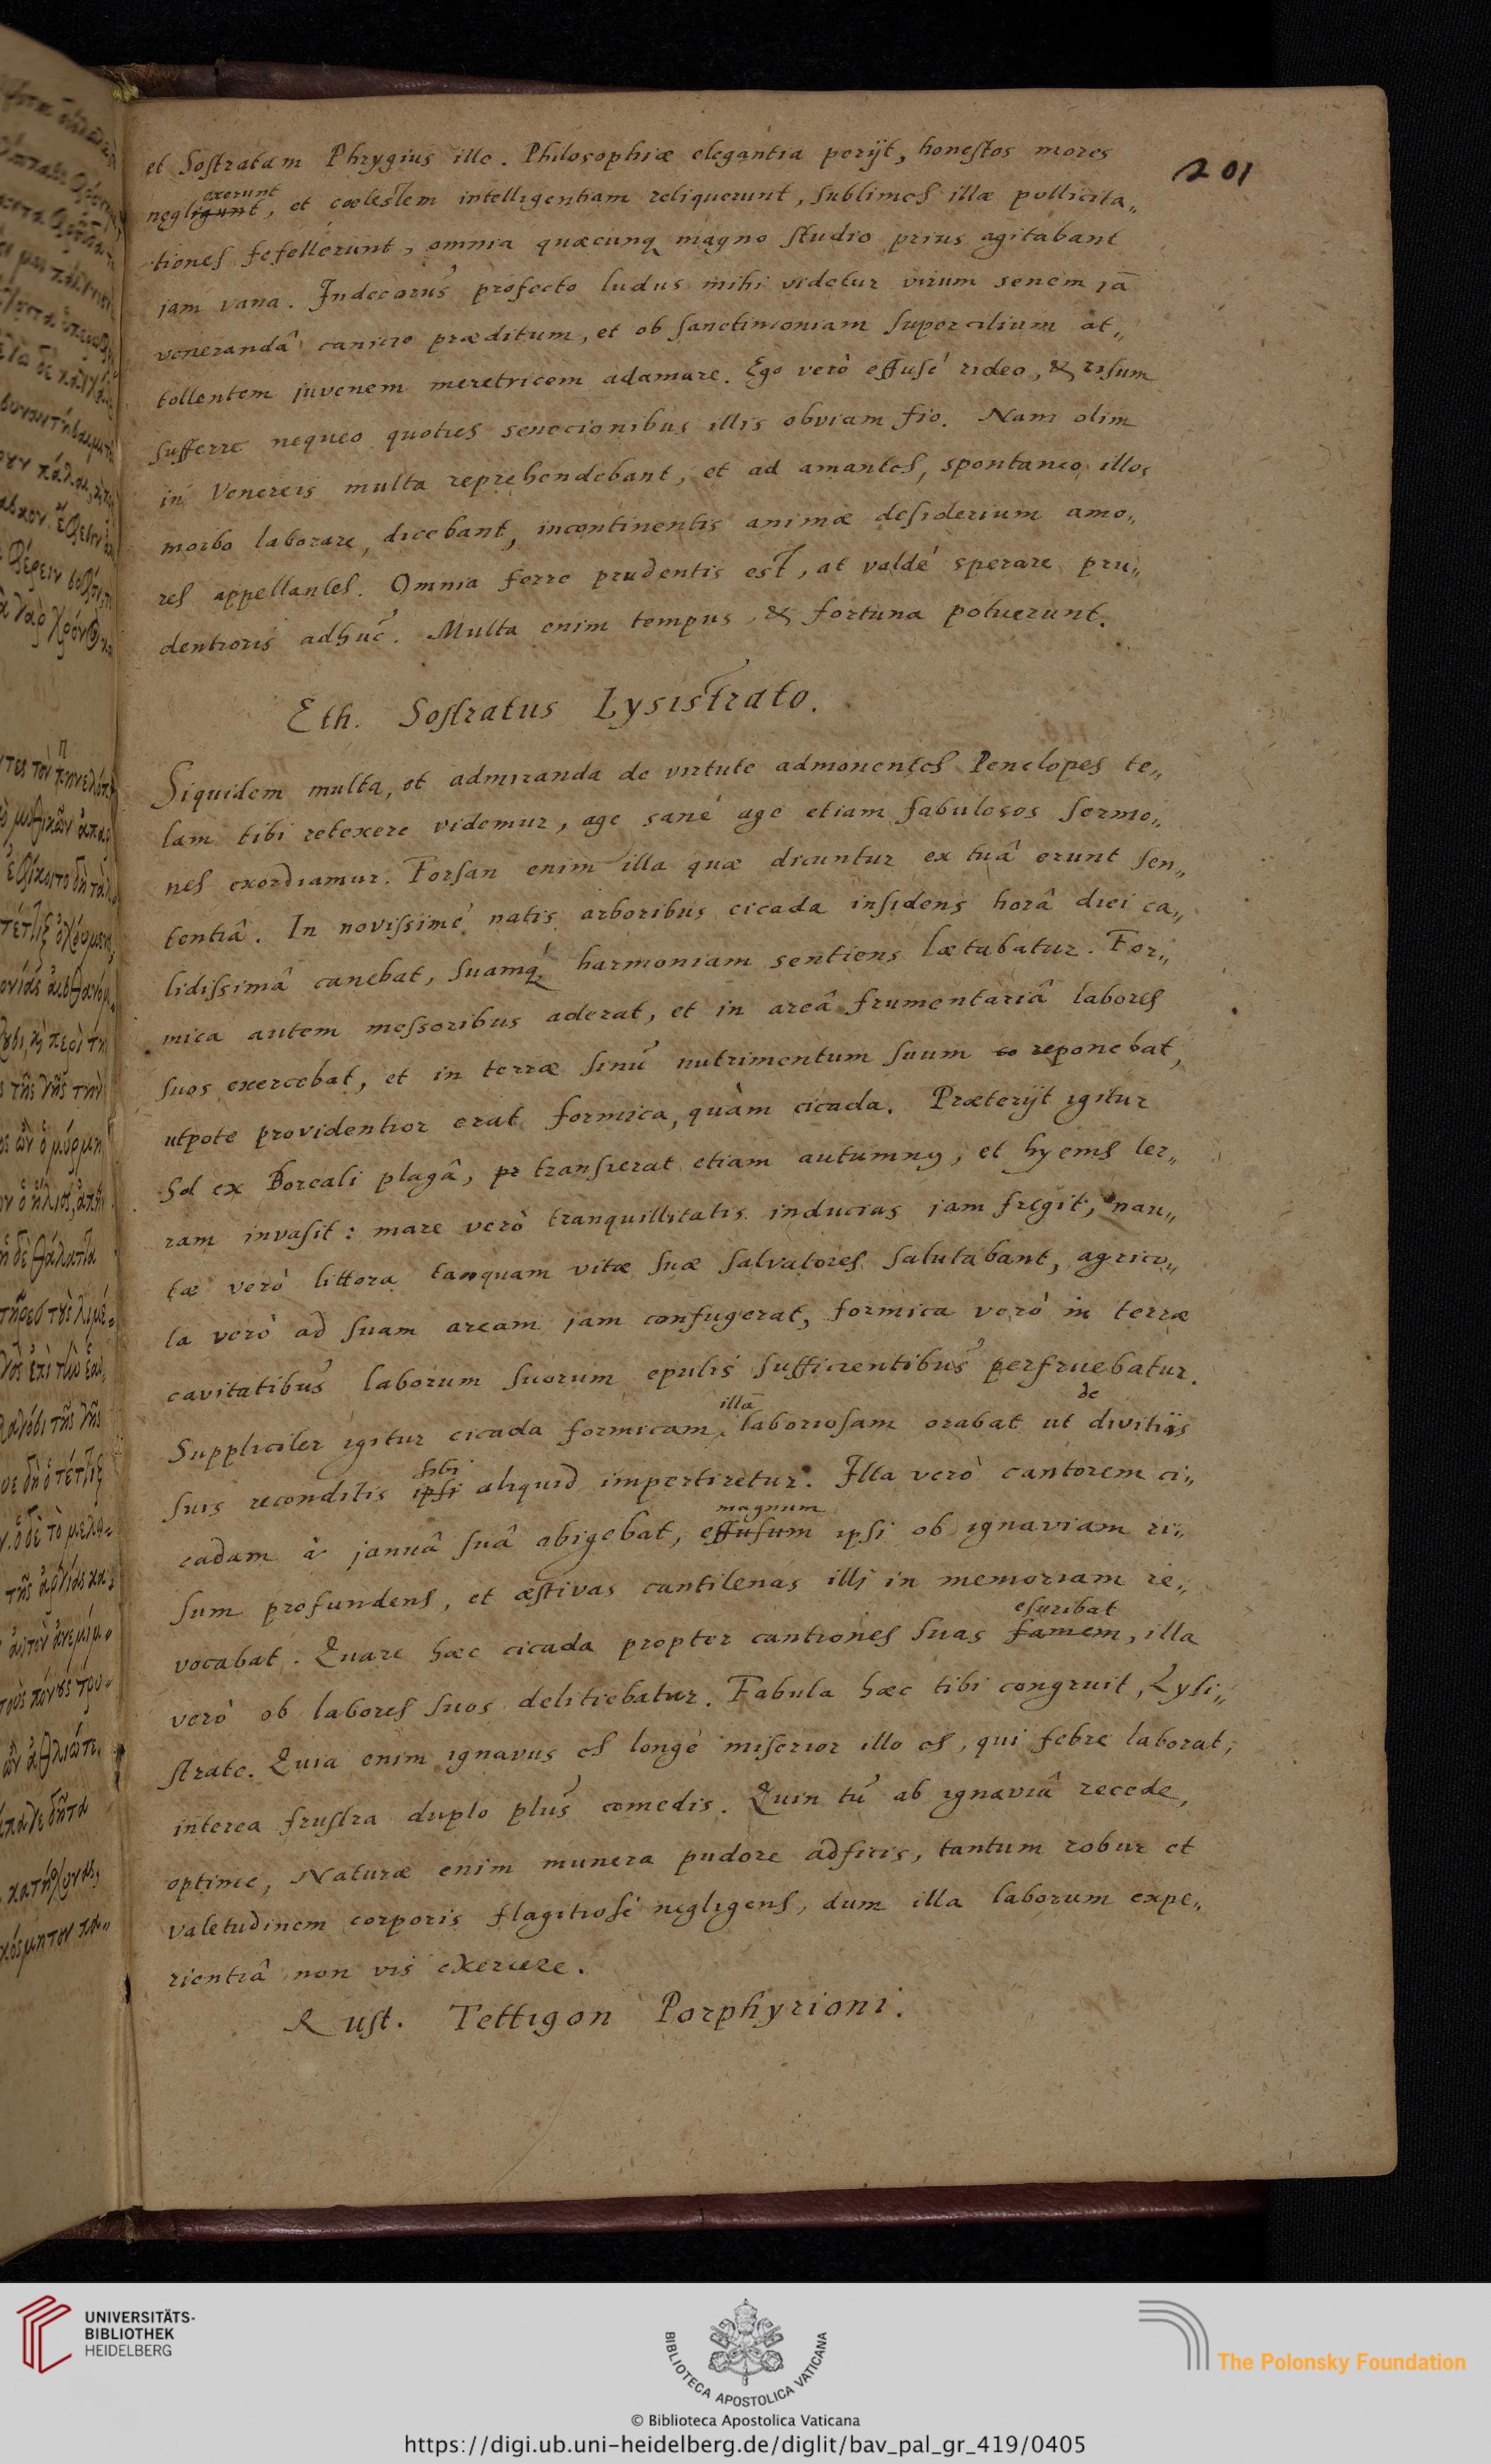 et Sostratam Phrygius ille. Philosophiæ elegantia perijt, honestos mores
201
exerunt
negligunt, et cœlestem intelligentiam reliquerunt, sublimes illæ pollicita„
tiones fefellerunt, omnia quæcunq magno studio prius agitabant
jam vana. Indecorus profecto ludus mihi videtur virum senem jā
venerandâ canicie præditum, et ob sanctimoniam supercilium at„
tollentem juvenem meretricem adamare. Ego verò effusé rideo, & risum
sufferre nequeo quoties senecionibus illis obviam fio. Nam olim
in Venereis multa reprehendebant, et ad amantes, spontaneo illos
morbo laborare, dicebant, incontinentis animæ desiderium amo„
res appellantes. Omnia ferre prudentis est, at valdé sperare pru„
dentioris adhuc. Multa enim tempus & fortuna potuerunt.
Eth. Sostratus Lysistrato.
Siquidem multa, et admiranda de virtute admonentes Penelopes te„
lam tibi retexere videmur, age sané age etiam fabulosos sermo„
nes exordiamur. Forsan enim illa quæ dicuntur ex tuâ erunt sen„
tentiâ. In novissimé natis arboribus cicada insidens horâ diei ca„
lidissimâ canebat, suamq́ harmoniam sentiens lætabatur. For„
mica autem messoribus aderat, et in areâ frumentariâ labores
suos exercebat, et in terræ sinu nutrimentum suum co reponebat,
utpote providentior erat formica, quàm cicada. Præterijt igitur
Sol ex Boreali plagâ, pr transierat etiam autumnus, et hyems ter„
ram invasit: mare verò tranquillitatis inducias jam fregit, nau„
tæ verò littora tanquam vitæ suæ salvatores salutabant, agrico„
la verò ad suam aream jam confugerat, formica verò in terræ
cavitatibus laborum suorum epulis sufficientibus perfruebatur.
illā
de
Suppliciter igitur cicada formicam laboriosam orabat ut divitiis
sibi
suis reconditis ipsi aliquid impertiretur. Illa verò cantorem ci„
magnum
cadam à januâ suâ abigebat, effusum ipsi ob ignaviam ri„
sum profundens, et æstivas cantilenas illi in memoriam re„
esuribat
vocabat. Quare hæc cicada propter cantiones suas famem, illa
verò ob labores suos delitiebatur. Fabula hæc tibi congruit, Lysi„
strate. Quia enim ignavus es longè miserior illo es, qui febre laborat,
interea frustra duplo plus comedis. Quin tu ab ignaviâ recede,
optime, Naturæ enim munera pudore adficis, tantum robur et
valetudinem corporis flagitiosé negligens, dum illa laborum expe„
rientiâ non vis exercere.
Rust. Tettigon Porphyrioni.
UNIVERSITÄTS-
BIBLIOTHEK
HEIDELBERG
BIBLIOTECA APOSTOLICA VATICANA
The Polonsky Foundation
© Biblioteca Apostolica Vaticana
https://digi.ub.uni-heidelberg.de/diglit/bav_pal_gr_419/0405